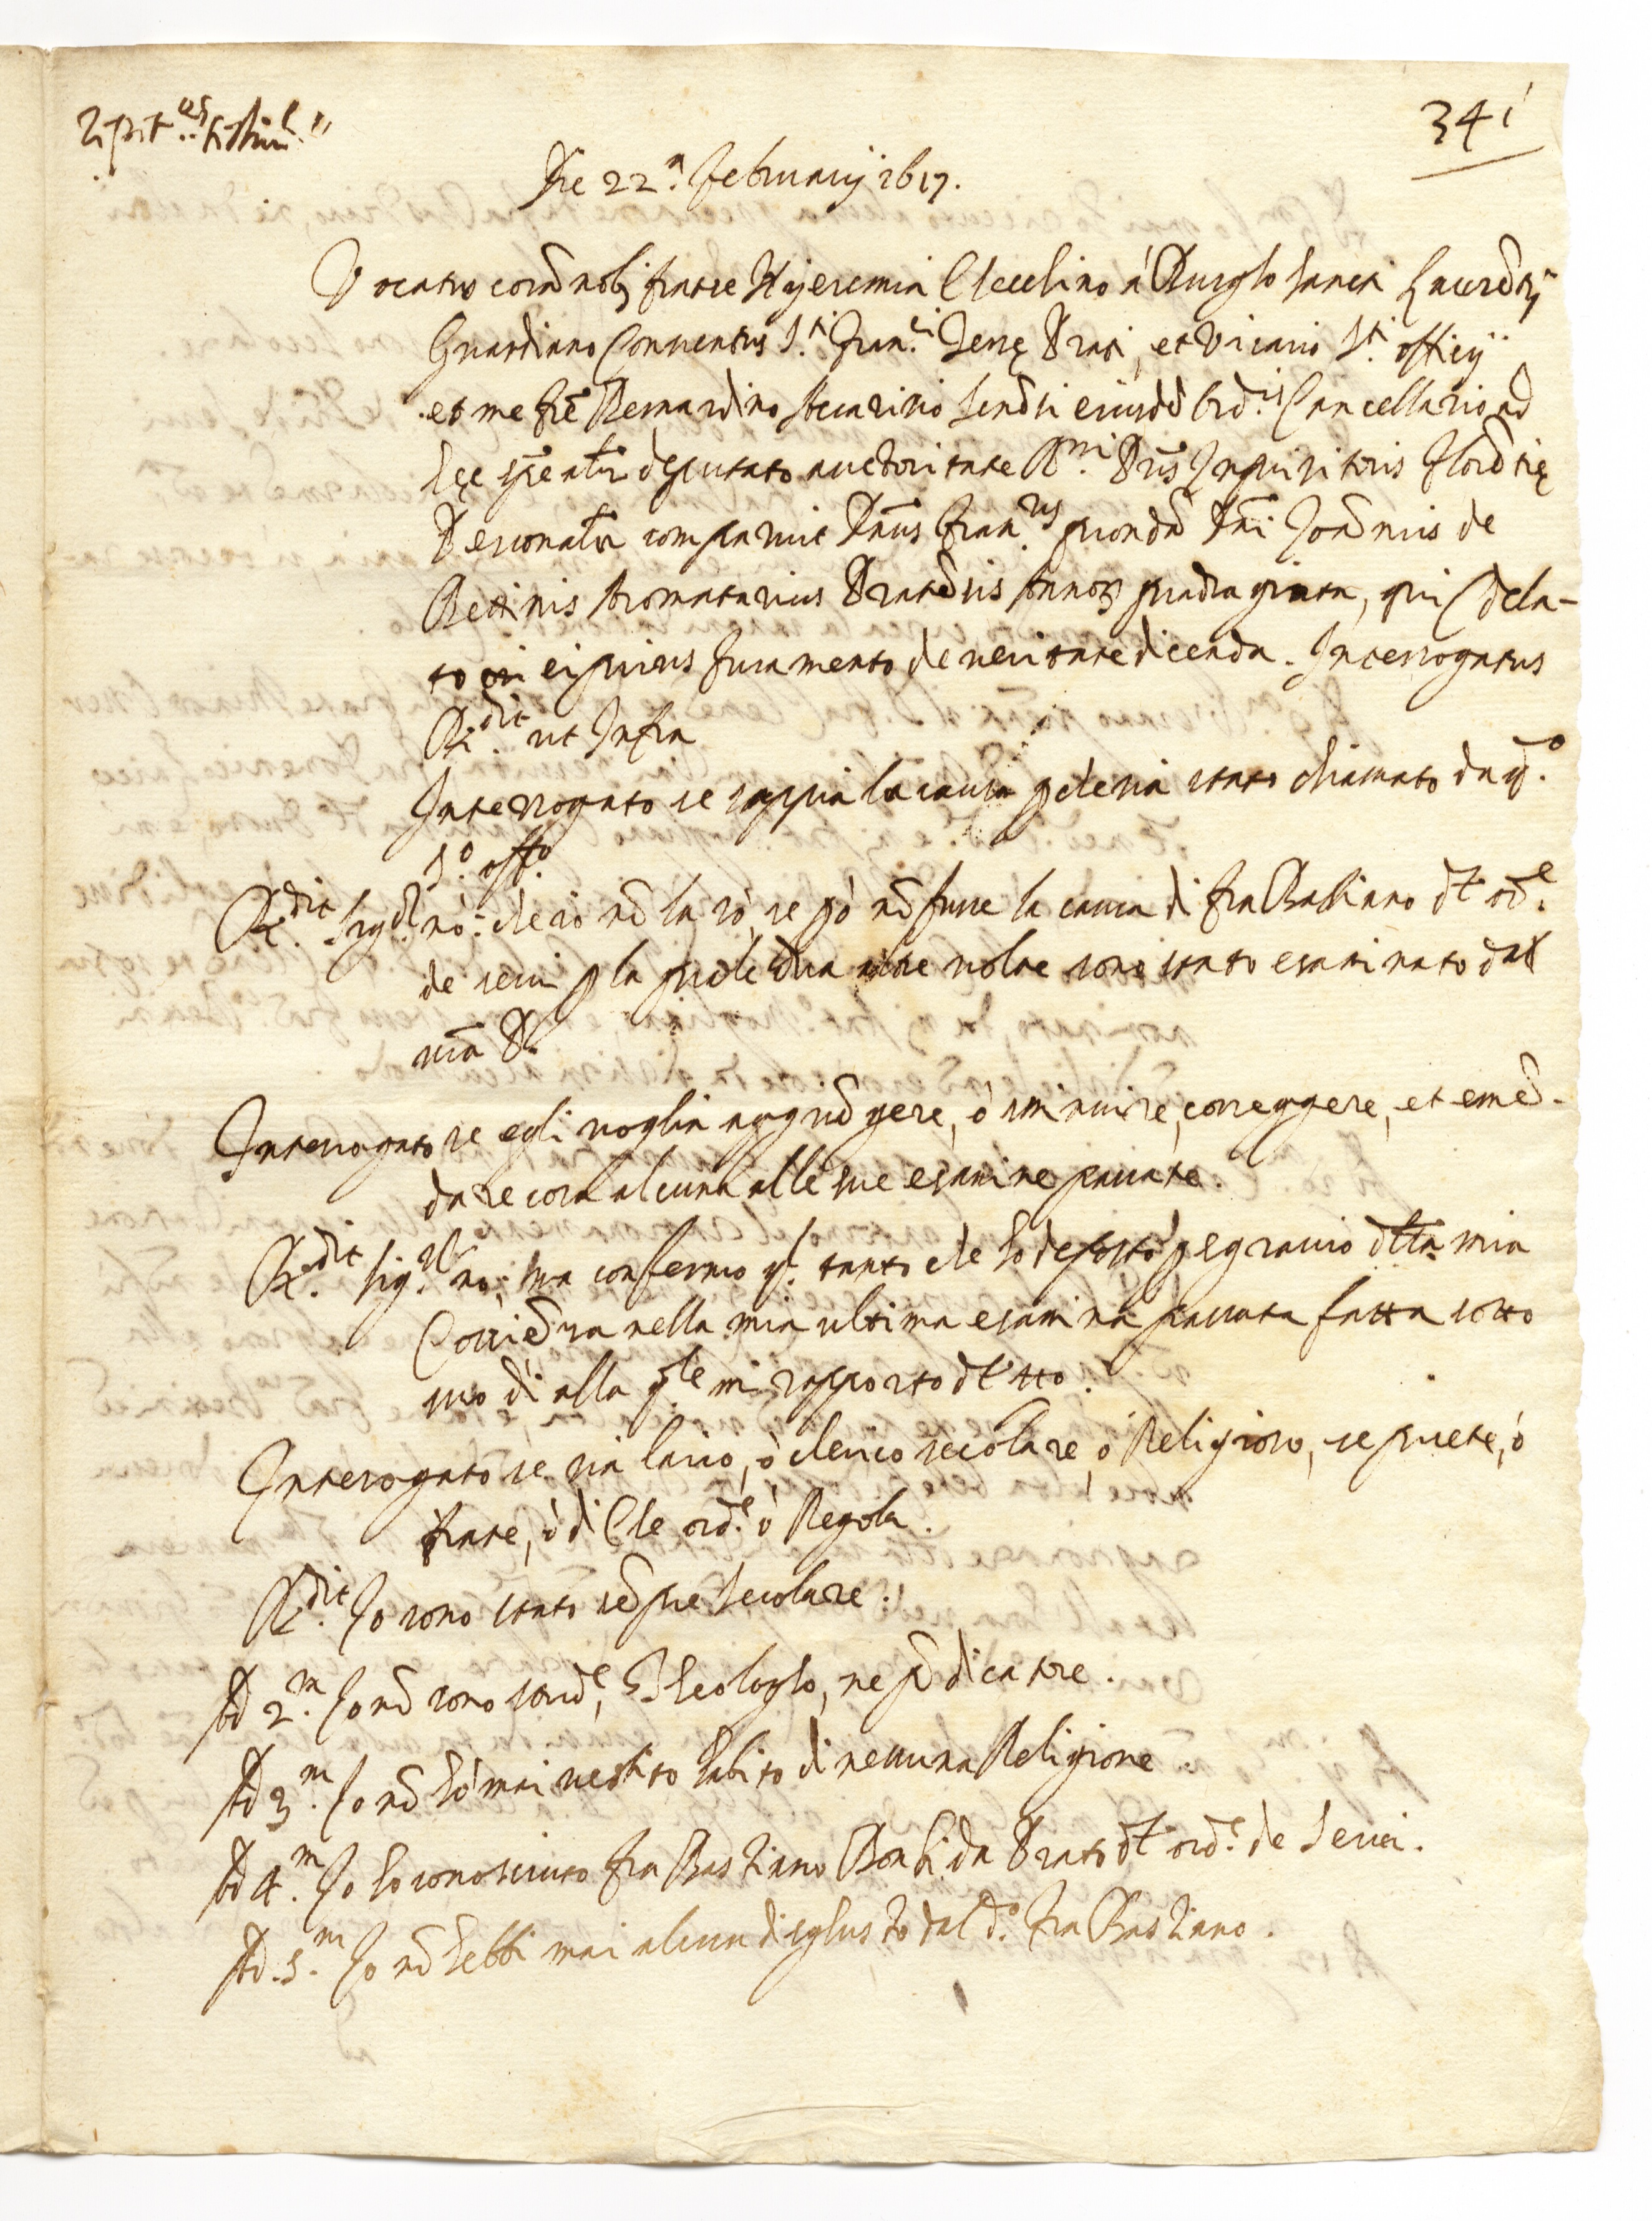 341
Die 22.a februarij 1617.
Vocatus corā nobis fratre Hyeremia Ceccolino á Burgho Sancti Laurētij
Guardiano Conuentus S.ti Fran.ci Terrę Prati, et Vicario S.ti officij
et me frē Bernardino eiusdē Ord.is Cancellario ad
hęc spēaltr deputato auctoritate P.ris Inquisitoris Florētię
Personaltr comparuit Dnus Fran.cus quondā Dni Joānnis de
Bettinis Aromatarius Pratēsis Annorȝ quadraginta, qui dela-
to ei prius Juramento de ueritate dicenda. Interrogatus
R.dit ut Infra
Interrogato se sappia la causa ꝑche sia stato chiamato da q.o
S.o off.o
R.dit Sig.r nò: che io nō la so, se ꝑò nō fusse la causa di fra Bastiano dl ord.e
de serui ꝑ la quale altre uolte sono stato esaminato dal
uīa P.
Interrogato se egli uoglia aggiūgere, ò sminuire, correggere, et emē-
dare cosa alcuna alle sue esamine passate.
R.dit Sig.r nò: ma confermo q. tanto che ho deposto ꝑ sgrauio dlla mia
Consciēza nella mia ultima esamina passata fatta sotto
suo dì alla q.le mi rapporto dl tto.
Interrogato se sia laico, ò clerico secolare, ò Religioso, se prete, ò
frate, ò di che ord.e ò Regola.
R.dit Io sono stato sēpre secolare.
Ad 2.m Io nō sono Theologho, ne ꝑdicatore.
Ad 3.m Io nō hò mai uestito habito di nessuna Religione
Ad 4.m Io ho conosciuto fra Bastiano Bonbi da Prato dl ord.e de Serui.
Ad.5.m Io nō hebbi mai alcun disghusto dal d.o fra Bastiano.